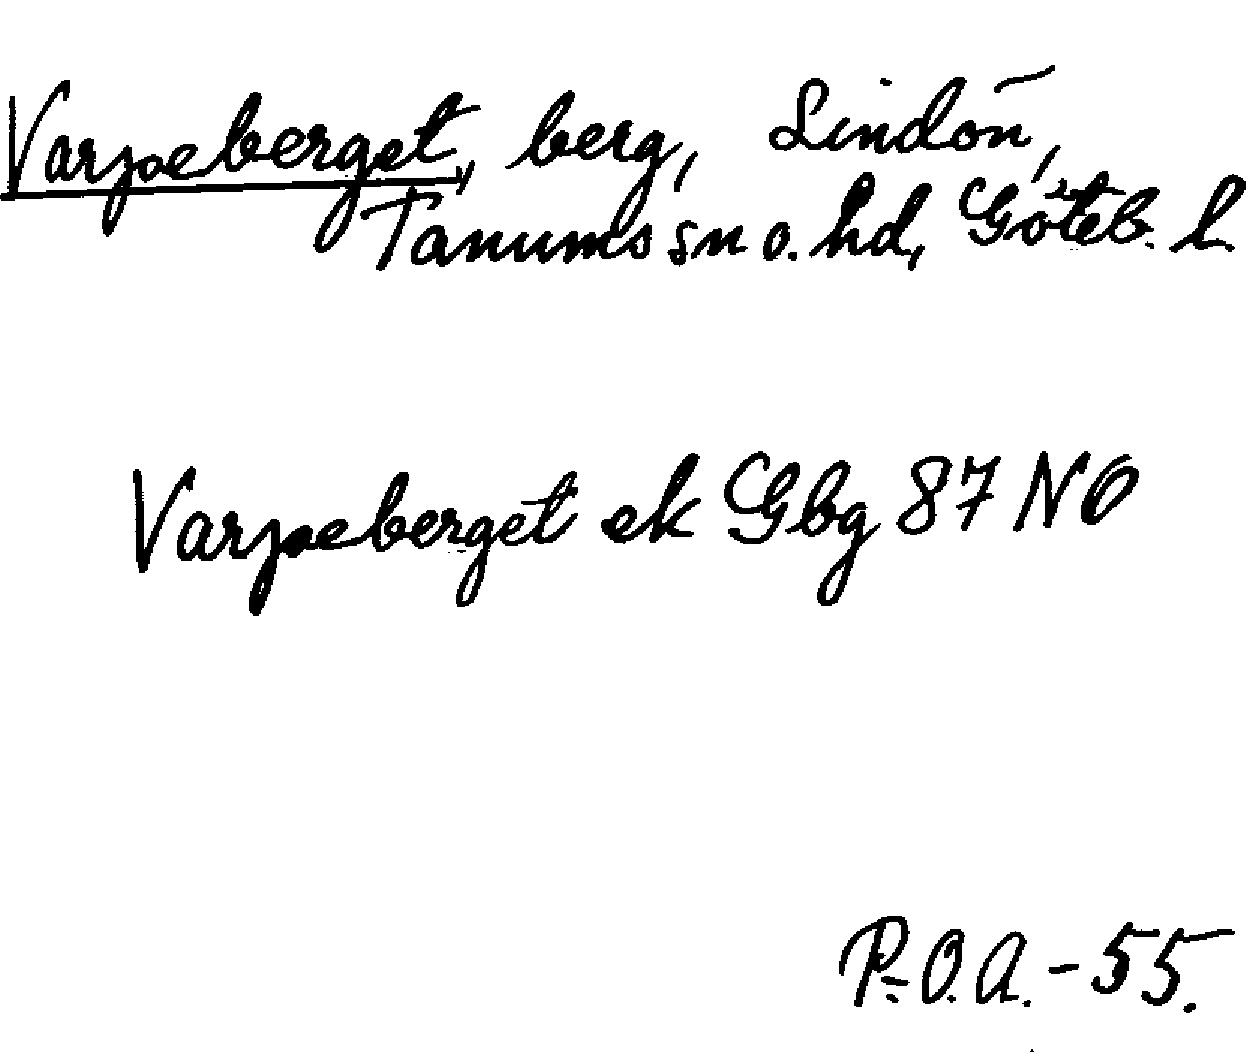 Varpeberget, berg, Lindön,
Tanums sn o. hd, Göteb. l.
Varpeberget ek Gbg 87 NO
P.-O.A. -55.